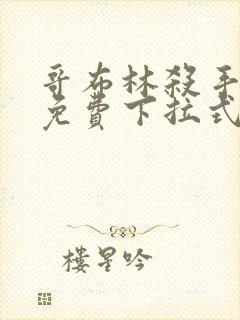 哥布林殺手
免費下拉式
樓星吟